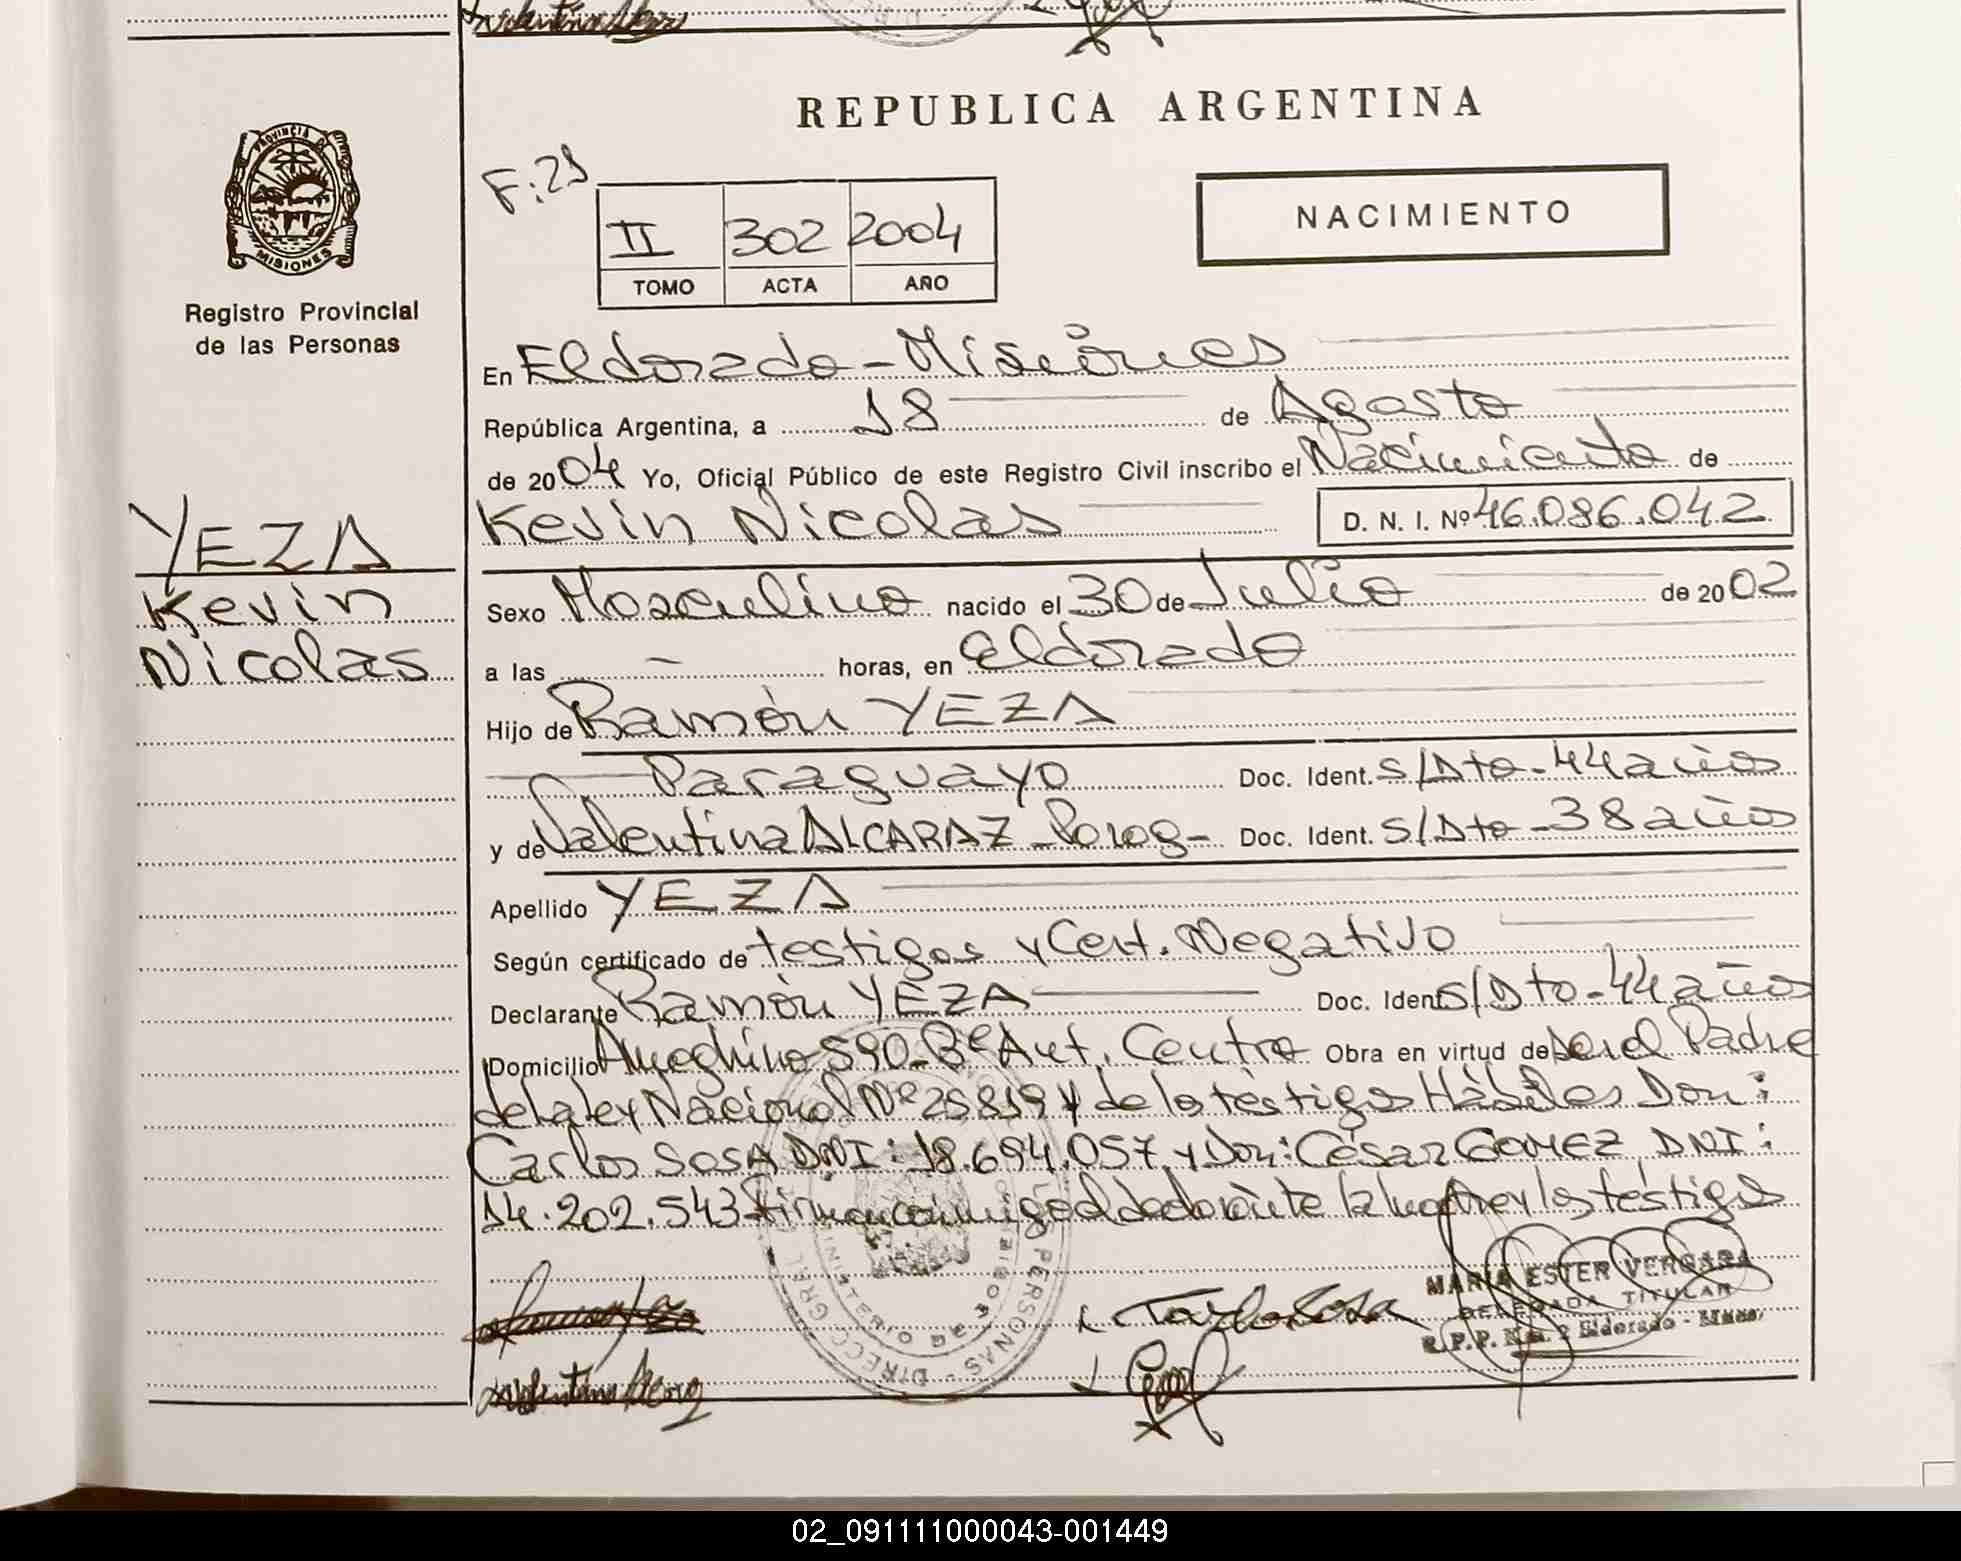 REPUBLICA ARGENTINA
PROVINCIA D
MISIONES
Registro Provincial
de las Personas
F:29
NACIMIENTO
II 302 2004
TOMO ACTA AÑO
En Eldorado - Misiones
República Argentina, a 18 de Agosto
de 2004 Yo, Oficial Público de este Registro Civil inscribo el Nacimiento de
Kevin Nicolas D. N. I. Nº 46.086.042
YEZA
Kevin
Nicolas
Sexo Masculino nacido el 30 de Julio de 2002
a las - horas, en Eldorado
Hijo de Ramón YEZA
Paraguayo Doc. Ident. S/Dto - 44 años
y de Valentina ALCARAZ - Parag - Doc. Ident. S/Dto - 38 años
Apellido YEZA
Según certificado de testigos y Cert. Negativo
Declarante Ramón YEZA Doc. Ident. S/Dto - 44 años
Domicilio Ameghino 590 - Bº Aut. Centro Obra en virtud de ser el Padre
de la ley Nacional Nº 25819 y de los testigos Hábiles Don:
Carlos SOSA DNI: 18.694.057 y Don: César GOMEZ DNI:
14.202.543 firman conmigo el declarante la madre y los testigos
MARIA ESTER VERGARA
DELEGADA TITULAR
R.P.P. Nº 2 Eldorado - Mnes.
PERSONAS - DIRECC GRAL
MINISTERIO DE GOBIERNO
02_091111000043-001449